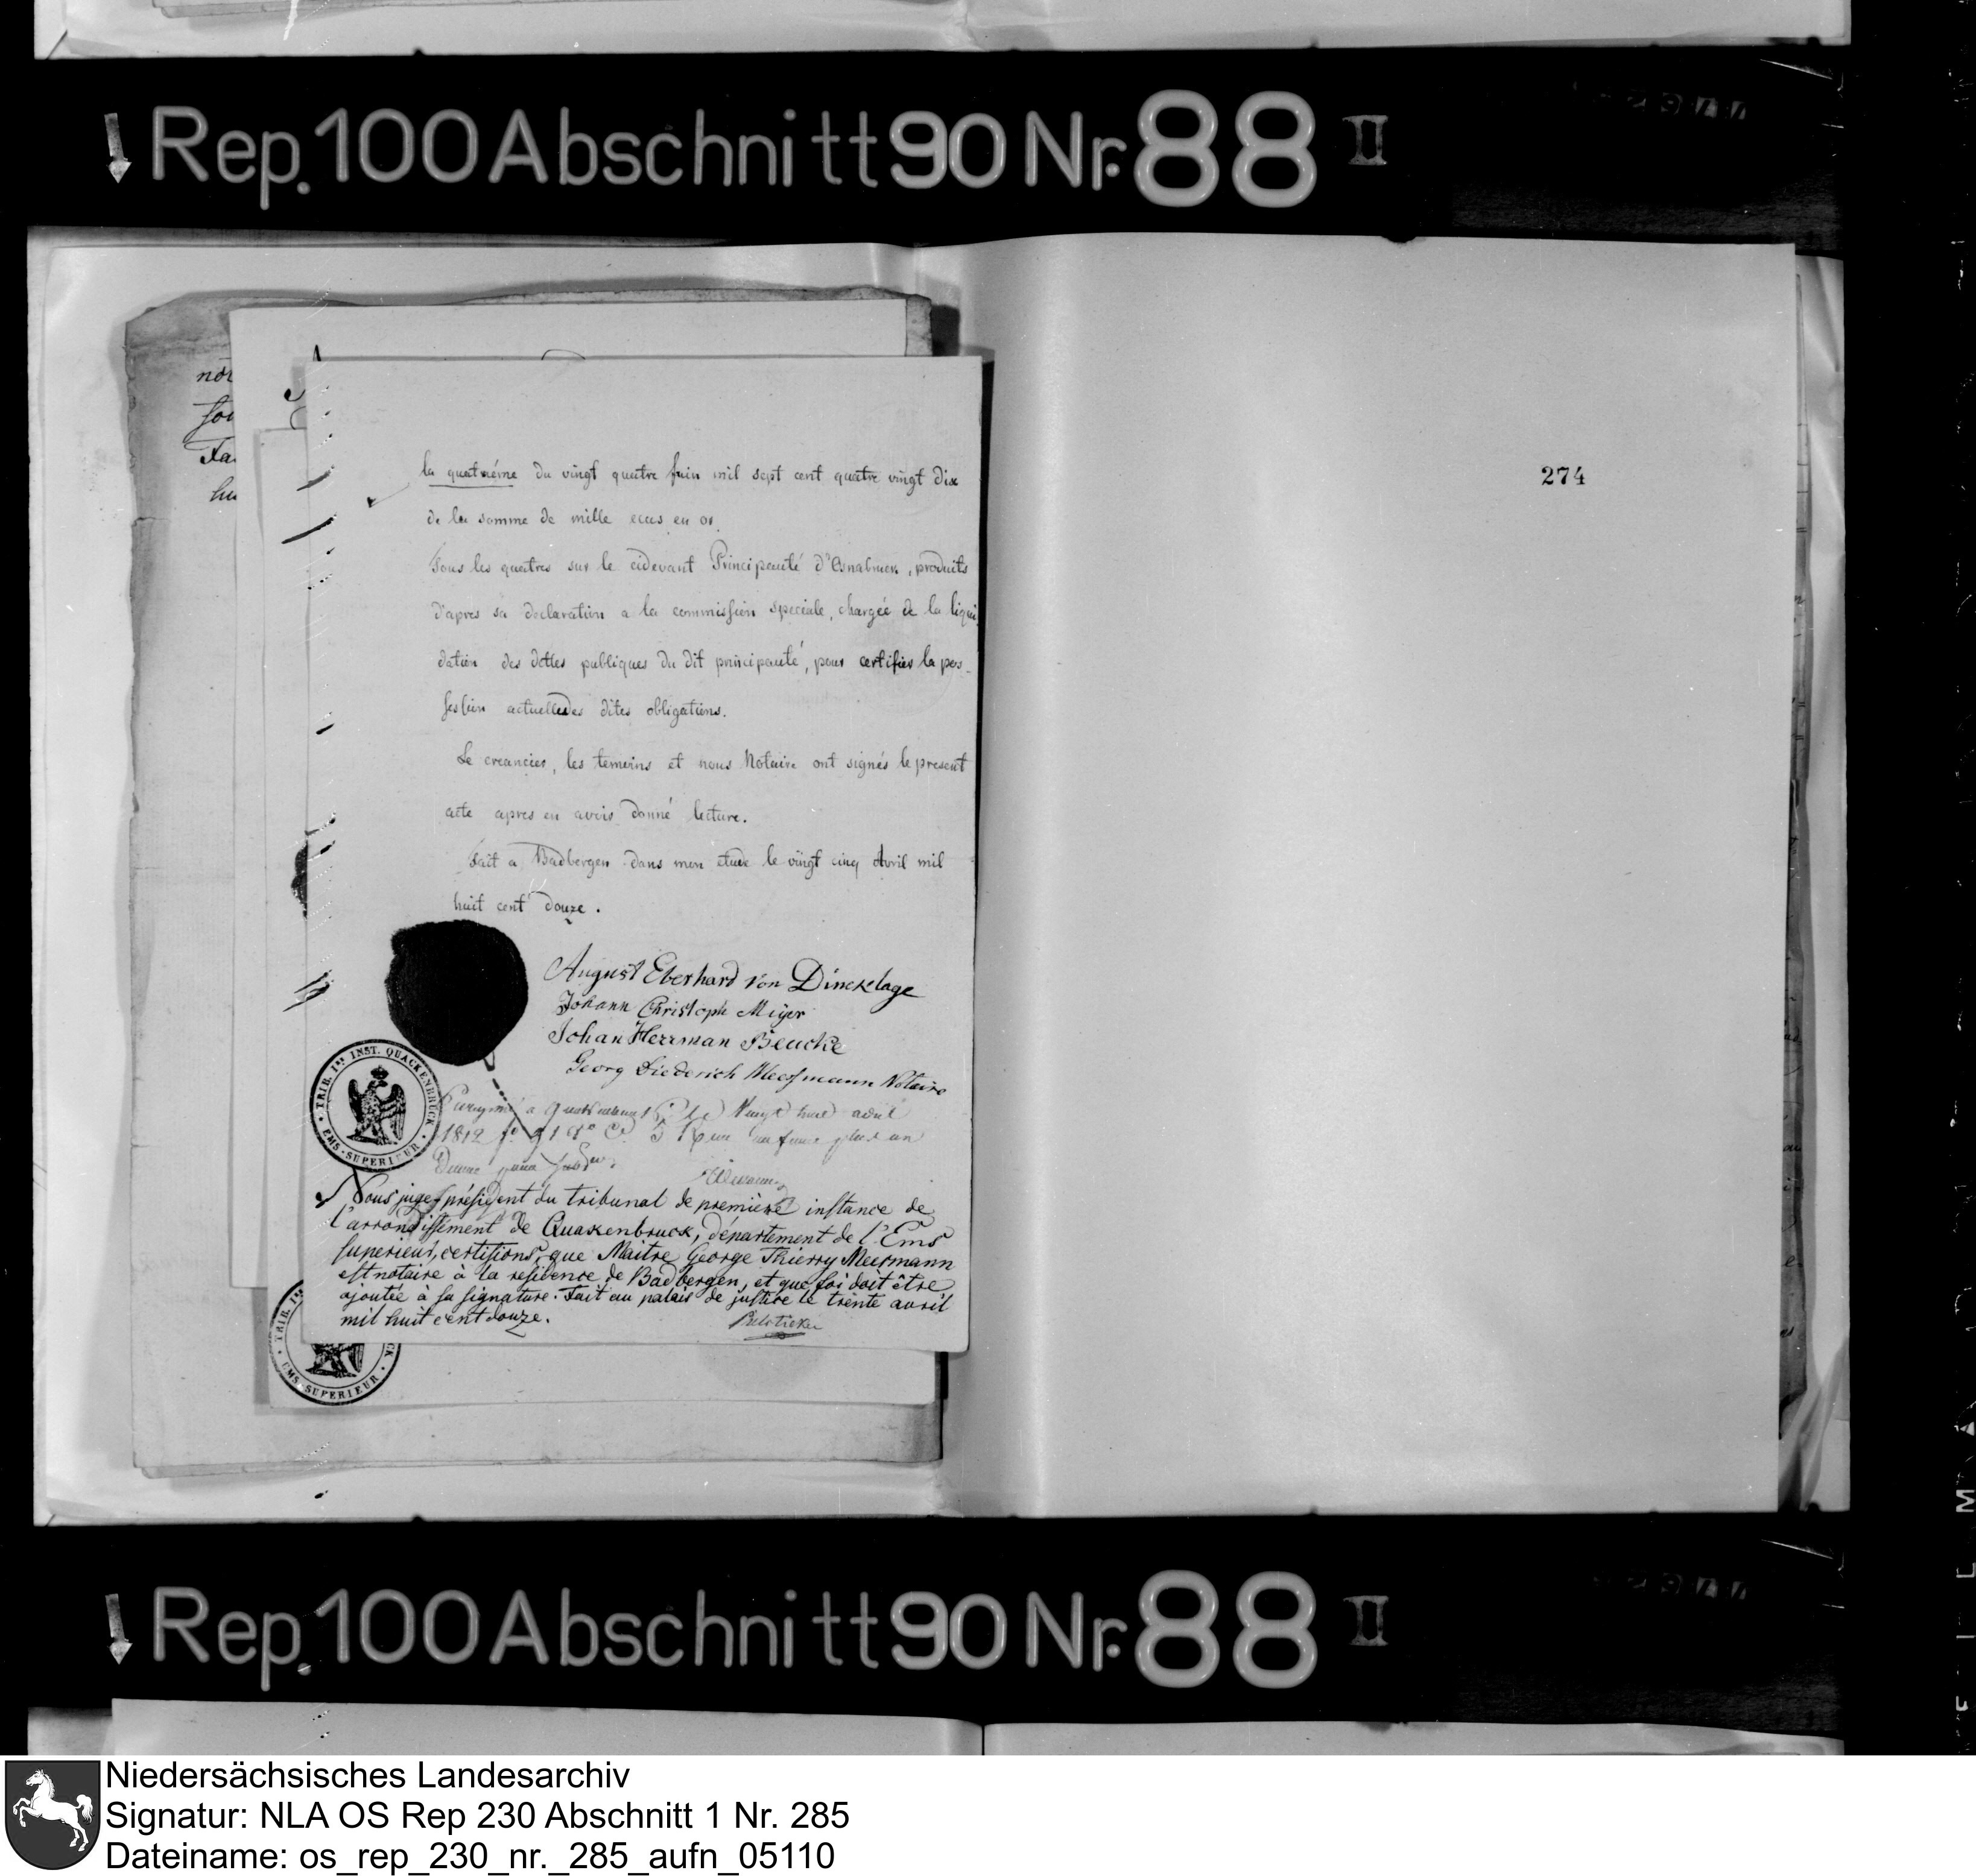 Rep. 100 Abschnitt 90 Nr. 88 II
nor
sou
Fa
hu
la quatriéme du vingt quatre juin mil sept cent quatre vingt dix
de la somme de mille ecus en or.
Tous les quatres sur le cidevant Principauté d'Osnabruck, produits
d'apres sa declaration a la commission speciale, chargée de la liqui
dation des dettes publiques du dit principauté, pour certifier la pos-
session actuelle des dites obligations.
Le creancier, les temoins et nous Notaire ont signés le present
acte apres en avoir donné lecture.
Fait a Badbergen dans mon etude le vingt cinq Avril mil
huit cent douze.
August Eberhard von Dincklage
Johann Christoph Meÿer
Johan Herrman Beucke
Georg Diederich Meesmann Notaire
TRIB. Iere INST. QUACKENBRUCK
EMS-SUPERIEUR
a le Vingt huit avril
1812 f° 91 Ce 5
Nous juge président du tribunal de première instance de
l'arrondissement de Quakenbruck, département de l'Ems
superieur, certifions, que Maitre George Thierry Meesmann
est notaire à la residence de Badbergen, et que foi doit être
ajoutée à sa signature. Fait au palais de justice le trente avril
mil huit cent douze.
TRIB. Iere
CK
EMS-SUPERIEUR
274
Rep. 100 Abschnitt 90 Nr. 88 II
Niedersächsisches Landesarchiv
Signatur: NLA OS Rep 230 Abschnitt 1 Nr. 285
Dateiname: os_rep_230_nr._285_aufn_05110